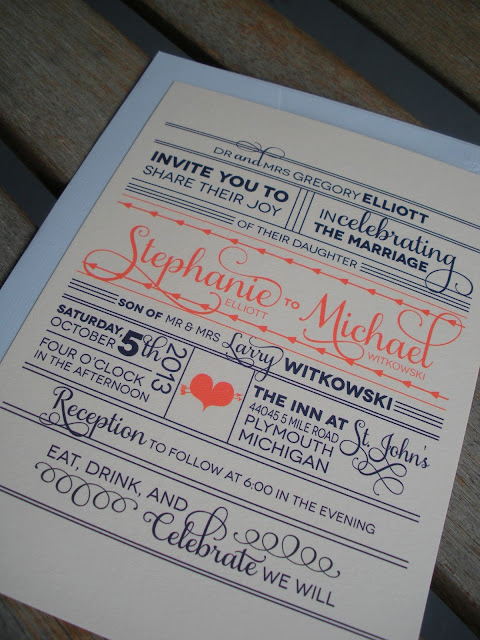 DR and MRS GREGORY ELLIOTT
INVITE YOU TO
SHARE THEIR JOY
IN celebrating
THE MARRIAGE
OF THEIR DAUGHTER
Stephanie TO Michael
ELLIOTT
WITKOWSKI
SON OF MR & MRS Larry WITKOWSKI
SATURDAY,
OCTOBER 5th 2013
FOUR O'CLOCK
IN THE AFTERNOON
THE INN AT St. John's
44045 5 MILE ROAD
PLYMOUTH
MICHIGAN
Reception TO FOLLOW AT 6:00 IN THE EVENING
EAT, DRINK, AND
Celebrate WE WILL